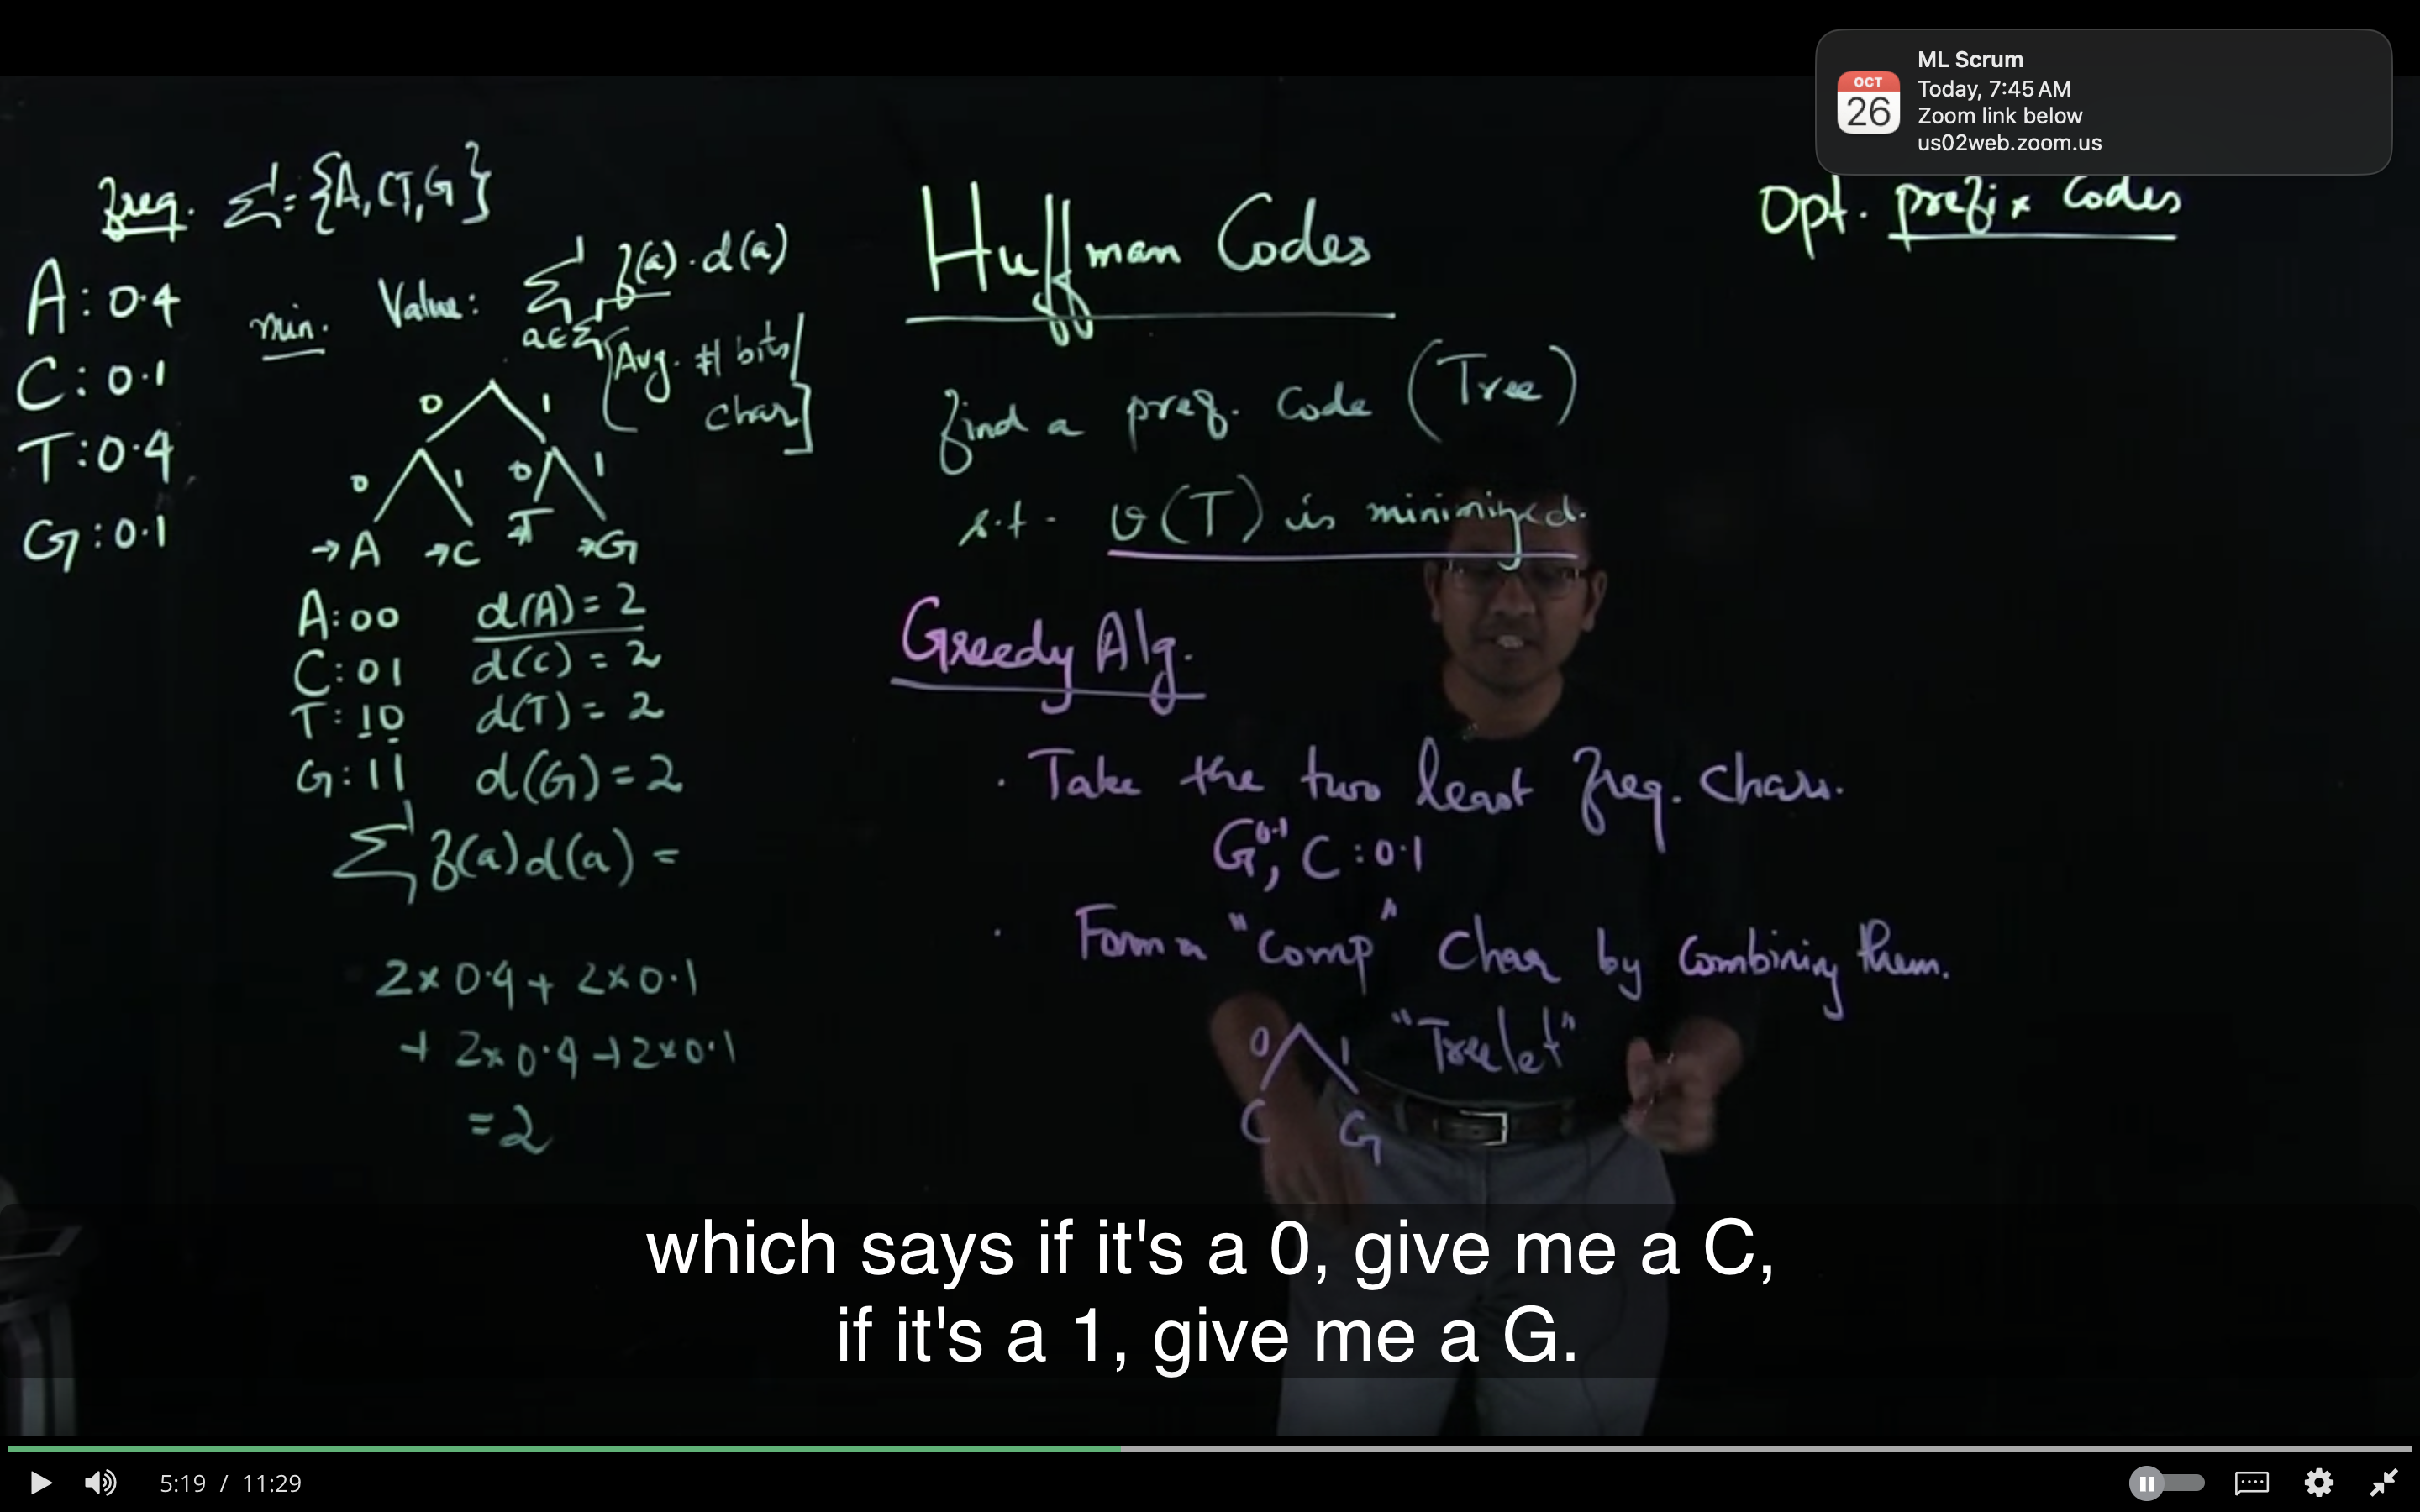 ML Scrum
OCT
26
Today, 7:45 AM
Zoom link below
us02web.zoom.us
freq. Σ = {A,C,T,G}
A: 0.4
C: 0.1
T: 0.4
G: 0.1
min. Value: Σ f(a)·d(a)
a∈Σ
[Avg. # bits/
char]
0 1
0 1 0 1
→A →C →T →G
A: 00 d(A) = 2
C: 01 d(C) = 2
T: 10 d(T) = 2
G: 11 d(G) = 2
Σ f(a) d(a) =
2 x 0.4 + 2 x 0.1
+ 2 x 0.4 + 2 x 0.1
= 2
Huffman Codes
find a pref. Code (Tree)
s.t. v(T) is minimized.
Greedy Alg.
· Take the two least freq. chars.
G 0.1, C: 0.1
· Form a "Comp" Char by Combining them.
0 1 "Treelet"
C G
Opt. prefix Codes
which says if it's a 0, give me a C,
if it's a 1, give me a G.
5:19 / 11:29